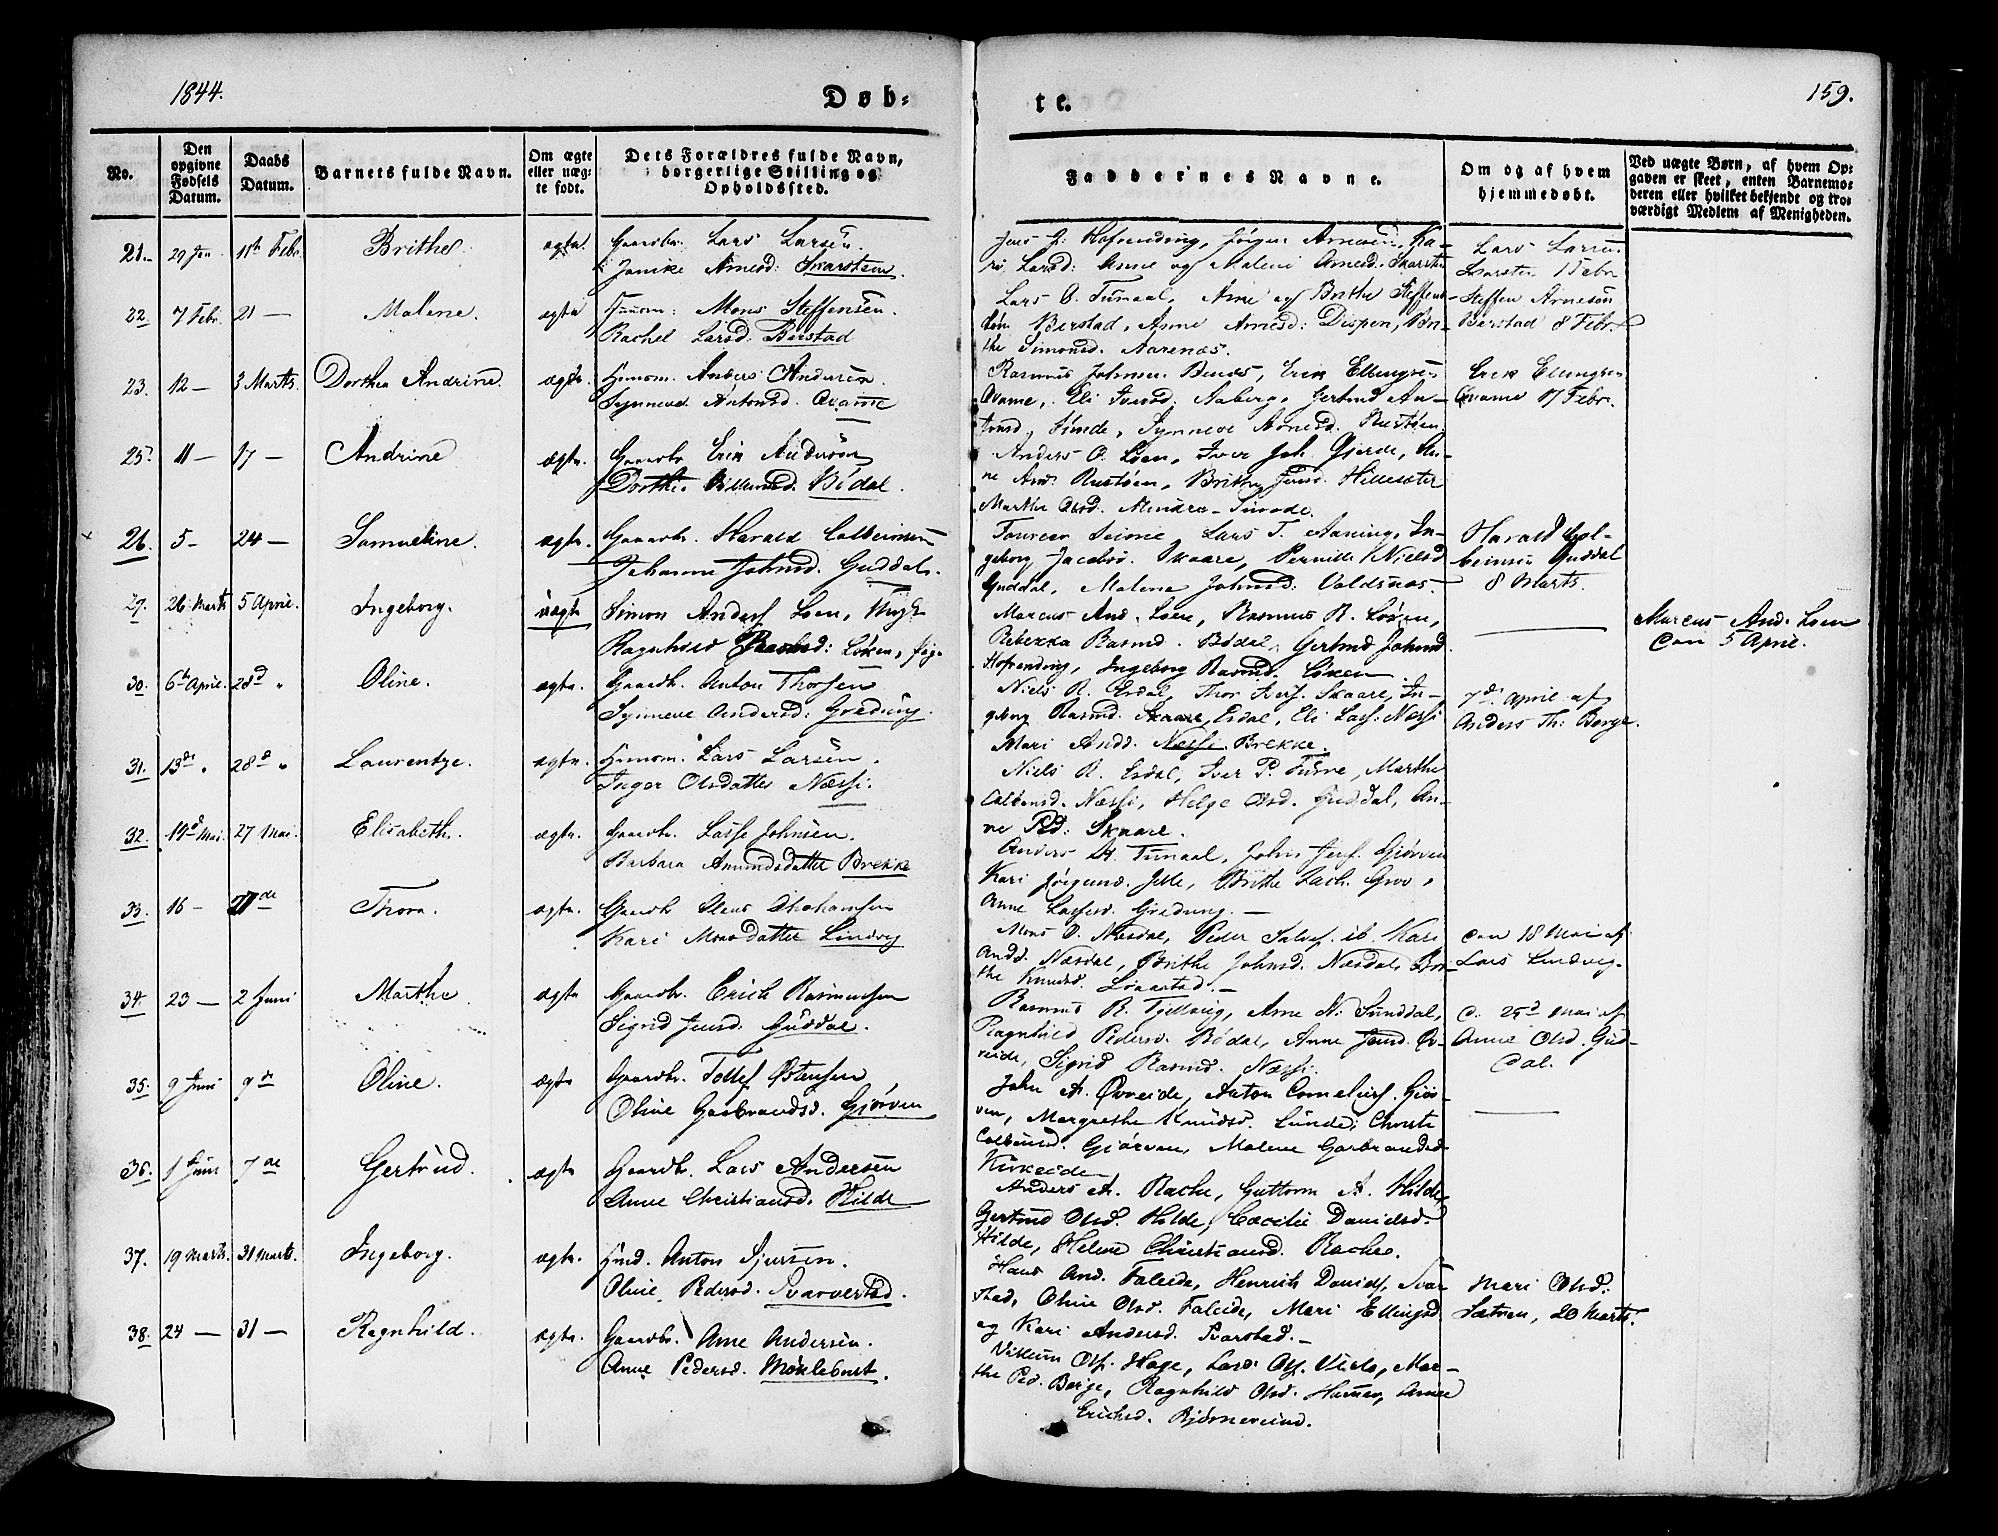 1844.
Døb-
te.
159.
No.
Den opgivne Fødsels Datum.
Daabs Datum.
Barnets fulde Navn.
Om ægte eller uægte født.
Dets Forældres fulde Navn, borgerlige Stilling og Opholdssted.
Faddernes Navne.
Om og af hvem hjemmedøbt.
Ved uægte Børn, af hvem Opgaven er skeet, enten Barnemoderen eller hvilket bekjendt og troværdigt Medlem af Menigheden.
21. 29 Jan 11te Febr. Brithe ægte Gaardbr. Lars Larsen
Janike Arnesd: Skarsten.
Jens J. Hofrending, Jørgen Arnesen, Ka-
ri Larsd: Anne og Malene Arnesd. Skarsten
Lars Larsen
Skarsten 1 Febr
22. 7 Febr. 21 — Malene. ægte Huusm: Mons Steffensen.
Rachel Larsd. Berstad
Lars O. Tunaal, Arne og Brithe Steffens-
Berstad, Anne Arnesd: Dispen, Bri-
the Simonsd. Aarenæs.
Steffen Arnesen
Berstad 8 Febr.
23. 12 — 3 Marts. Dorthea Andrine ægte. Huusm. Anders Andersen.
Synneve Antonsd. Qvame
Rasmus Johnsen Benæs, Erik Ellingsen
Qvame, Eli Iversd. Aaberg, Gertrud An-
tonsd. Sunde, Synneve Arnesd. Rustøen
Erik Ellingsen
Qvame 17 Febr.
25. 11 — 17 — Andrine ægte. Gaardbr Erik Andersen
Dorthe Villumsd. Bødal.
Anders O. Loen, Iver Joh. Gjerde, An-
ne And. Rustøen, Brithe Jensd. Hillesæter
Marthe Olsd. Mindre-Sunde.
26. 5 — 24 — Samueline. ægte. Gaardbr. Harald Colbeinsen
Johanne Johnsd. Guddal.
Lars T. Aaning, In-
geborg Jacobsd. Skaare, Pernille Nielsd
Guddal, Malene Johnsd. Valdsnæs.
Harald Col-
beinsen Guddal
8 Marts.
29. 26 Marts 5 April. Ingeborg. uægte Simon Anders. Loen,
Ragnhild Løken, pige
Marcus And. Loen, Rasmus R. Løken,
Rebekka Rasmd. Bødal, Gertrud Johnsd
Hofrending, Ingeborg Rasmd. Løken
Marcus And. Loen
den 5 April.
30. 6te April. 28d " Oline. ægte. Gaardb. Anton Thorsen
Synneve Andersd: Greding.
Niels R. Erdal, Thor Ivers. Skaare, In-
geborg Rasmd. Skaare, Erdal, Eli Lass: Næssi
Mari Andd. Næssi Brekke.
7de April af
Anders Th: Berge.
31. 13de " 28d " Laurentze. ægte. Huusm. Lars Larsen.
Inger Olsdatter Næssi.
Niels R. Erdal, Iver P. Marthe
Colbensd. Næssi, Helge Olsd. Guddal, An-
ne Ped: Skaare.
32. 19d Mai. 27 Mai. Elisabeth. ægte. Gaardb. Lasse Johnsen.
Barbara Amundsdatter Brekke
Anders A. Tunaal, John Jens. Gjørven
Kari Jørgensd. Jelle, Brithe Zach. Groe,
Anne Lassesd. Gredung. —
33. 16 — 27de Thora. ægte. Gaardbr
Kari Monsdatter Lindvig
Mons O. Næsdal, Peder Salves. ib. Kari
Andd. Næsdal, Brithe Johnsd. Næsdal, Bri-
the Knudsd. —
den 18 Mai af
Lars Lindvig.
34. 23 — 2 Juni Marthe ægte Gaardbr. Erich Rasmussen
Sigrid Jensd. Guddal.
Rasmus R. Tjellaug, Arne N. Sunddal,
Ragnhild Pedersd. Bødal, Anne Jensd. Øv-
reide, Sigrid Rasmd. Næssi.
d. 25d Mai af
Anne Olsd. Gud-
dal.
35. 9 Juni 9de Oline. ægte Gaardbr. Tollef Østensen
Oline Garbrandsd. Gjørven
John A. Øvreide, Anton Cornelius. Gjør-
ven, Margrethe Knudsd. Sunde, Christi
Colbeinsd. Gjørven, Malene Garbrandsd
Kirkeide
36. 1 Juni 7de Gertrud. ægte Gaardbr. Lars Andersen
Anne Christiansd. Hilde
Anders A. Rache, Guttorm A. Hilde,
Gertrud Olsd. Hilde, Cæcilie Danielsd.
Hilde, Helene Christiansd. Rache.
37. 19 Marts. 31 Marts. Ingeborg. ægte. Hmd. Anton Sjursen.
Oline Pedersd. Svarverstad.
Hans And. Faleide, Henrich Daniels. Svar-
stad, Oline Olsd. Faleide, Mari Ellingsd
og Kari Andersd. Svarstad. —
Mari Olsd.
Sætren, 20 Marts.
38. 24 — 31 — Ragnhild. ægte. Gaardbr. Arne Andersen.
Anne Pedersd. Møklebust.
Villum Ols. Hage, Lars Ols. Mar-
the Ped. Berge, Ragnhild Olsd. Hammer, Anne
Erichsd. Bjørnereim.